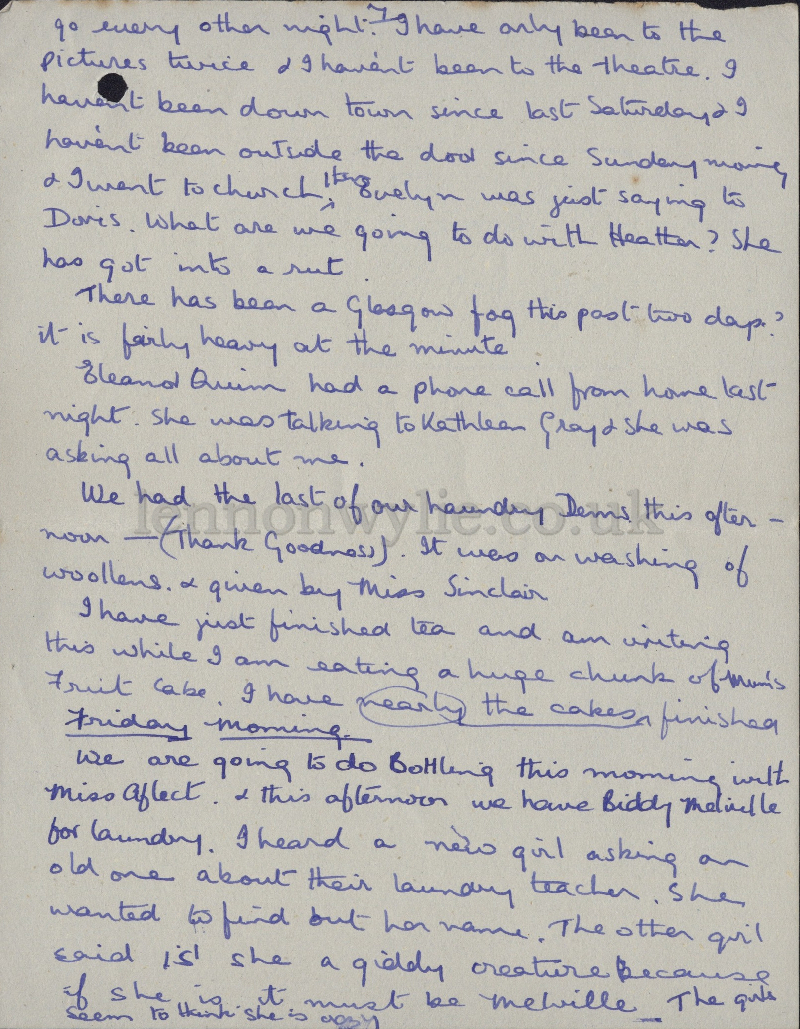 go every other night. I have only been to the
pictures twice & I haven't been to the theatre. I
haven't been down town since last Saturday & I
haven't been outside the door since Sunday morning
& I went to church. Evelyn was just saying to
Doris. What are we going to do with Heather? She
has got into a rut.
There has been a Glasgow fog this past two days.
it is fairly heavy at the minute
Eleanor Quinn had a phone call from home last
night. She was talking to Kathleen Gray & she was
asking all about me.
We had the last of our laundry Dems this after -
noon — (Thank Goodness). It was on washing of
woollens. & given by Miss Sinclair
I have just finished tea and am writing
this while I am eating a huge chunk of Mum's
Fruit cake. I have nearly the cakes finished
Friday morning.
We are going to do Bottling this morning with
Miss Aflect. & this afternoon we have Biddy Melville
for laundry. I heard a new girl asking an
old one about their laundry teacher. She
wanted to find out her name. The other girl
said is she a giddy creature because
if she is it must be Melville — The girls
seem to think she is crazy
lennonwylie.co.uk